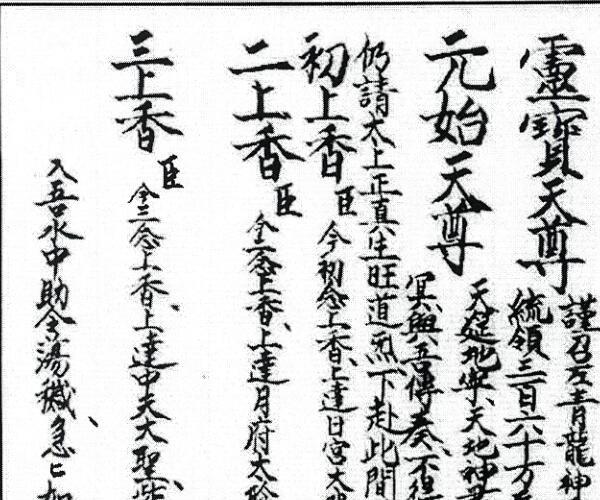 靈寶天尊
謹召左青龍神
統領三百六十万
元始天尊
天廷地牢天地神
冥與吾傳奏不得
仍請太上正真生旺道炁下赴此間
初上香 臣今初念上香上達日宮太
二上香 臣今二念上香上達月府太陰
三上香 臣今三念上香上達中天大聖紫
入吾水中助令蕩穢急亡如